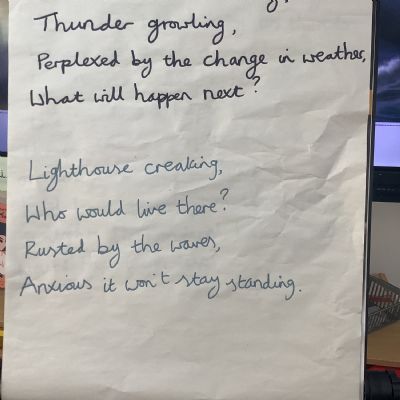 Thunder growling,
Perplexed by the change in weather,
What will happen next?
Lighthouse creaking,
Who would live there?
Rusted by the waves,
Anxious it won't stay standing.